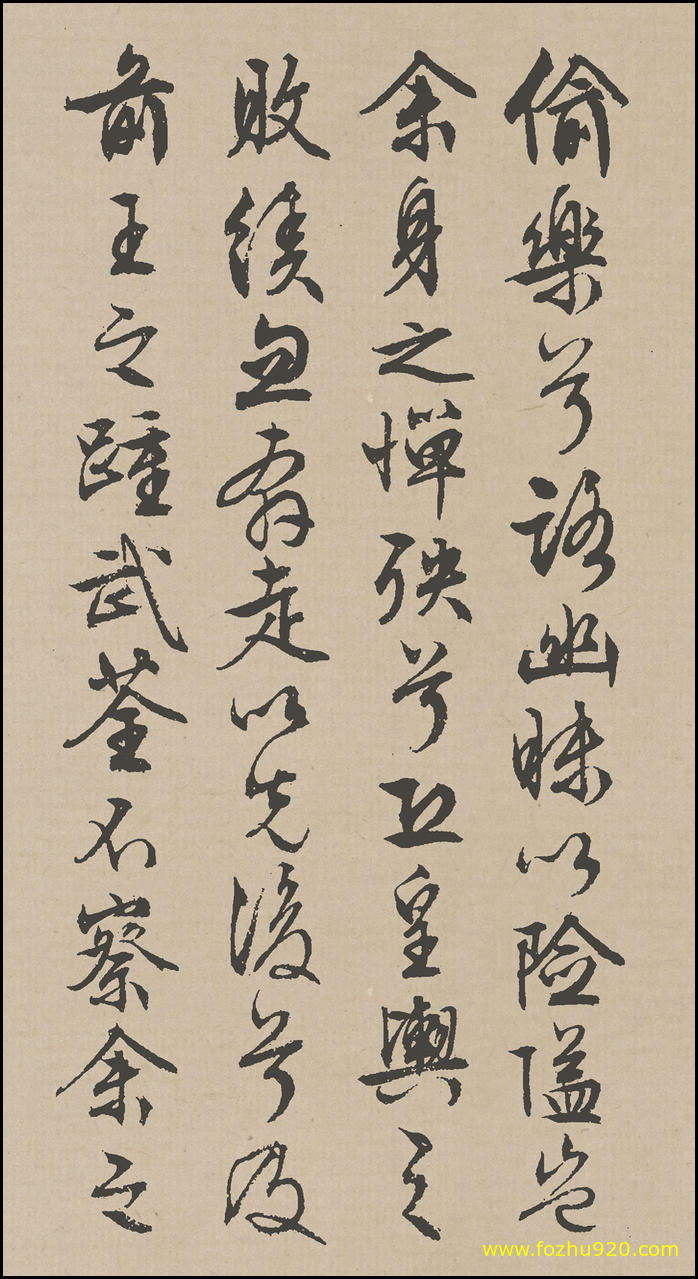 偷樂兮路幽昧以險隘豈
余身之憚殃兮恐皇輿之
敗績忽奔走以先後兮及
前王之踵武荃不察余之
www.fozhu920.com